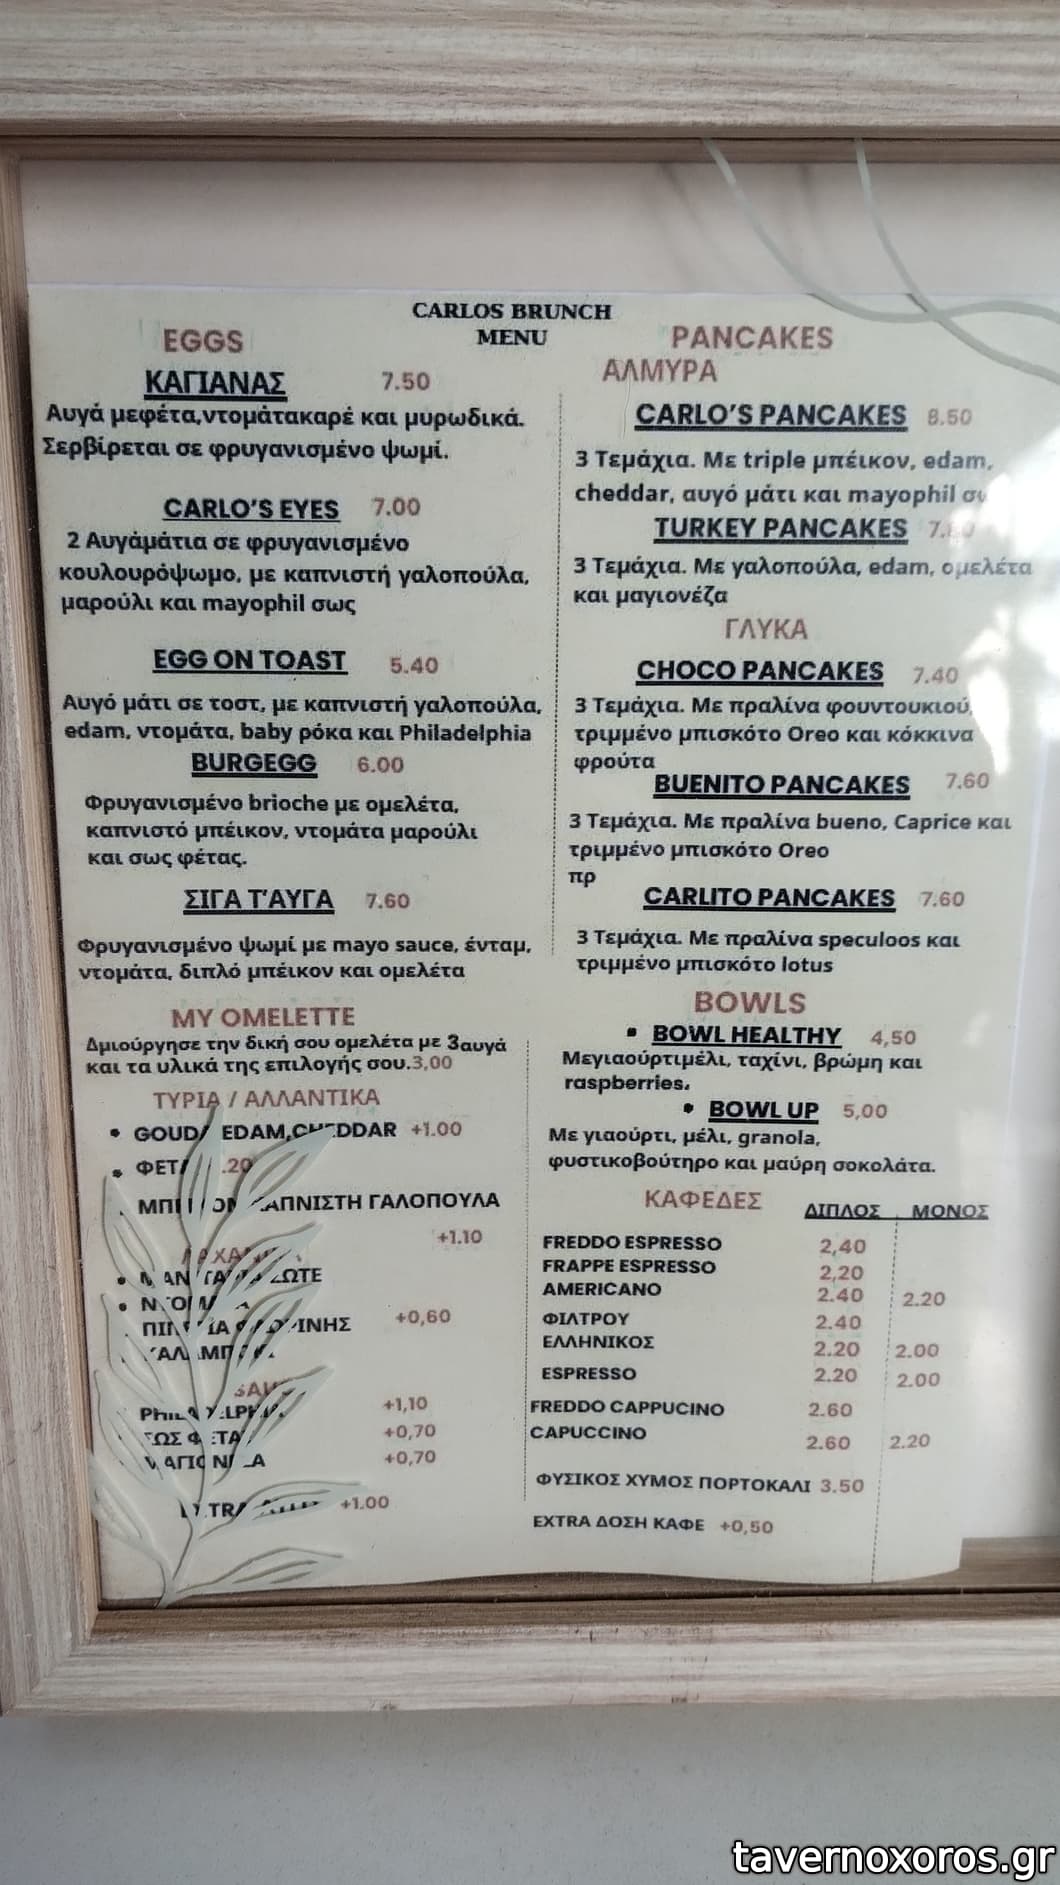 CARLOS BRUNCH
MENU
EGGS
ΚΑΓΙΑΝΑΣ 7.50
Αυγά μεφέτα,ντομάτακαρέ και μυρωδικά.
Σερβίρεται σε φρυγανισμένο ψωμί.
CARLO'S EYES 7.00
2 Αυγάμάτια σε φρυγανισμένο
κουλουρόψωμο, με καπνιστή γαλοπούλα,
μαρούλι και mayophil σως
EGG ON TOAST 5.40
Αυγό μάτι σε τοστ, με καπνιστή γαλοπούλα,
edam, ντομάτα, baby ρόκα και Philadelphia
BURGEGG 6.00
Φρυγανισμένο brioche με ομελέτα,
καπνιστό μπέικον, ντομάτα μαρούλι
και σως φέτας.
ΣΙΓΑ Τ'ΑΥΓΑ 7.60
Φρυγανισμένο ψωμί με mayo sauce, ένταμ,
ντομάτα, διπλό μπέικον και ομελέτα
MY OMELETTE
Δμιούργησε την δική σου ομελέτα με 3αυγά
και τα υλικά της επιλογής σου.3,00
ΤΥΡΙΑ / ΑΛΛΑΝΤΙΚΑ
GOUDA EDAM,CHEDDAR +1.00
ΦΕΤΑ
ΚΑΠΝΙΣΤΗ ΓΑΛΟΠΟΥΛΑ
+1.10
ΝΤΟΜΑΤΑ
ΦΛΩΡΙΝΗΣ +0,60
PHILADELPHIA +1,10
ΣΩΣ ΦΕΤΑΣ +0,70
ΜΑΓΙΟΝΕΖΑ +0,70
EXTRA +1.00
PANCAKES
ΑΛΜΥΡΑ
CARLO'S PANCAKES 8.50
3 Τεμάχια. Με triple μπέικον, edam,
cheddar, αυγό μάτι και mayophil
TURKEY PANCAKES
3 Τεμάχια. Με γαλοπούλα, edam, ομελέτα
και μαγιονέζα
ΓΛΥΚΑ
CHOCO PANCAKES 7.40
3 Τεμάχια. Με πραλίνα φουντουκιού,
τριμμένο μπισκότο Oreo και κόκκινα
φρούτα
BUENITO PANCAKES 7.60
3 Τεμάχια. Με πραλίνα bueno, Caprice και
τριμμένο μπισκότο Oreo
πρ
CARLITO PANCAKES 7.60
3 Τεμάχια. Με πραλίνα speculoos και
τριμμένο μπισκότο lotus
BOWLS
BOWL HEALTHY 4,50
Μεγιαούρτιμέλι, ταχίνι, βρώμη και
raspberries.
BOWL UP 5,00
Με γιαούρτι, μέλι, granola,
φυστικοβούτηρο και μαύρη σοκολάτα.
ΚΑΦΕΔΕΣ ΔΙΠΛΟΣ ΜΟΝΟΣ
FREDDO ESPRESSO 2,40
FRAPPE ESPRESSO 2,20
AMERICANO 2.40 2.20
ΦΙΛΤΡΟΥ 2.40
ΕΛΛΗΝΙΚΟΣ 2.20 2.00
ESPRESSO 2.20 2.00
FREDDO CAPPUCINO 2.60
CAPUCCINO 2.60 2.20
ΦΥΣΙΚΟΣ ΧΥΜΟΣ ΠΟΡΤΟΚΑΛΙ 3.50
EXTRA ΔΟΣΗ ΚΑΦΕ +0,50
tavernoxoros.gr